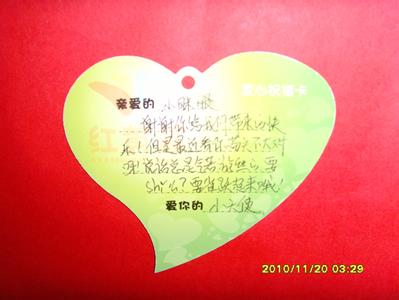 爱心祝福卡
亲爱的 小眯眼
谢谢你给我们带来的快
乐！但是最近看你苗头不大对
，说话总是
shi么？要雀跃起来哦！
爱你的 小天使
2010/11/20 03:29